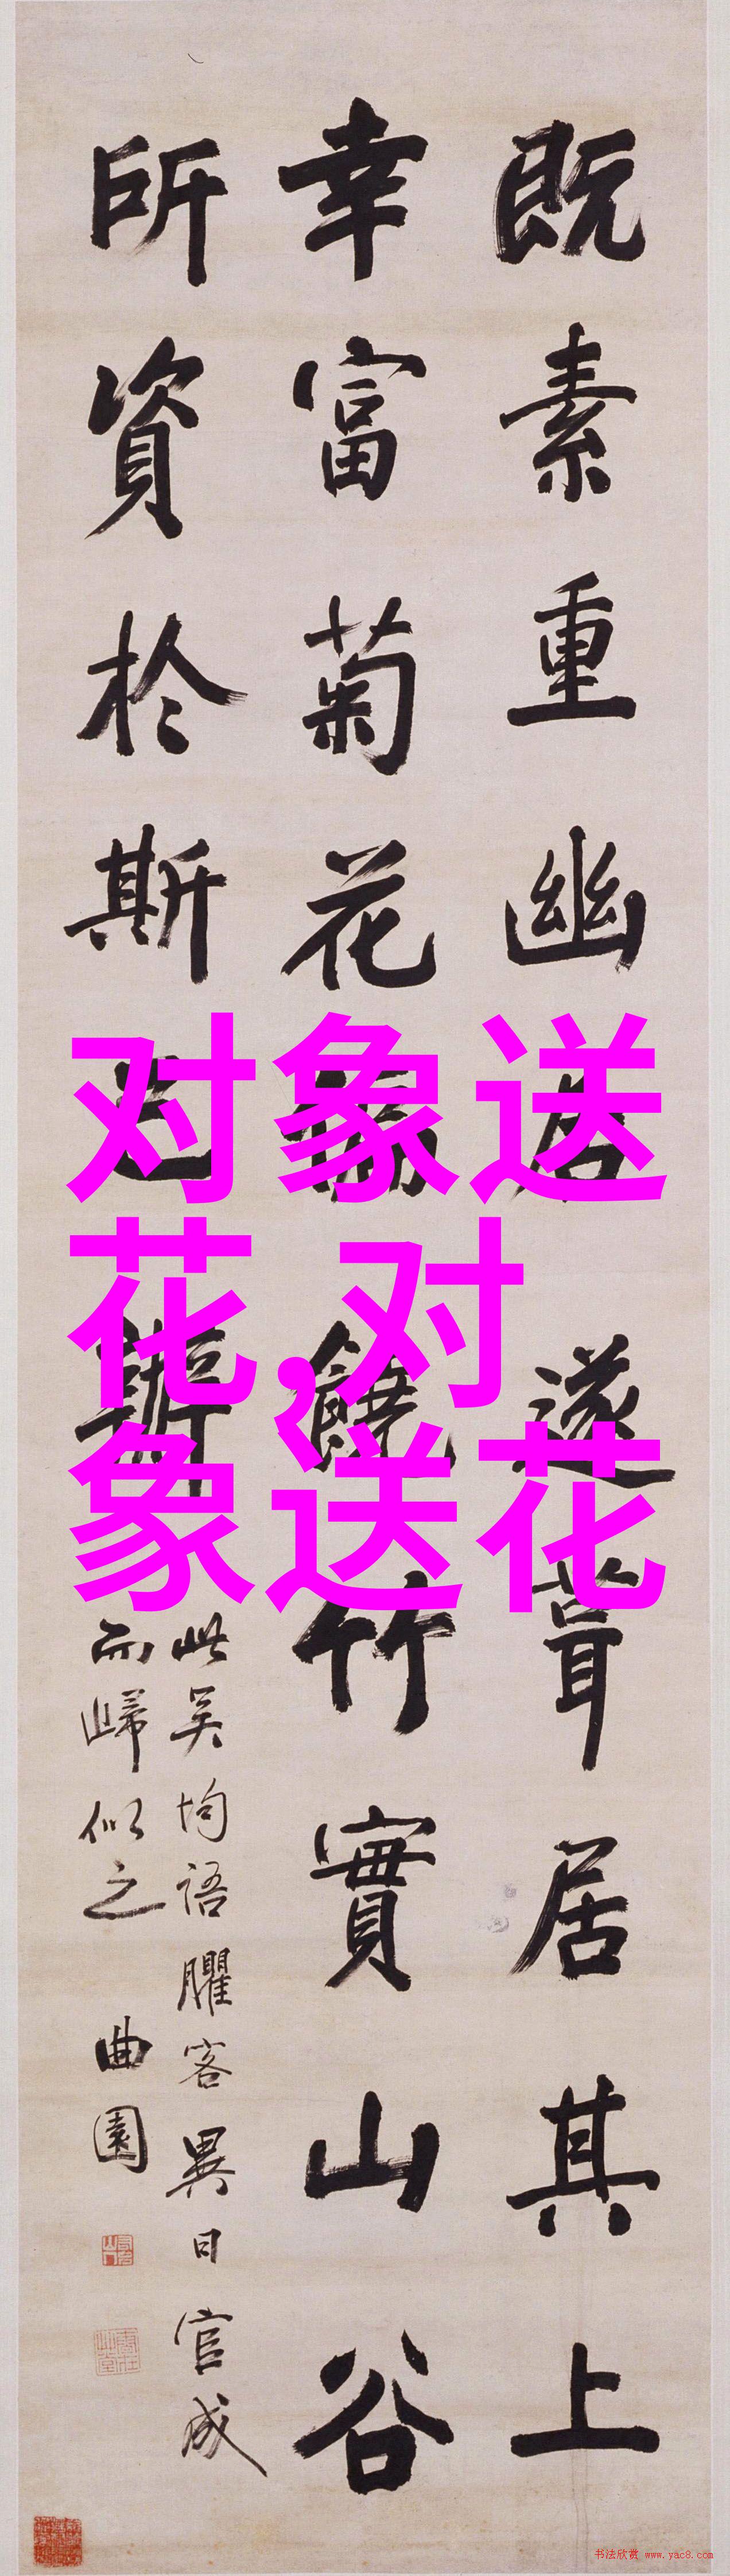 既素重幽居遂葺居其上
幸富菊花偏饒竹實山谷
所資於斯已辦
此吳均語臞客異日官成
而歸似之 曲園
对象送
花,对
象送花
书法欣赏 www.yac8.com